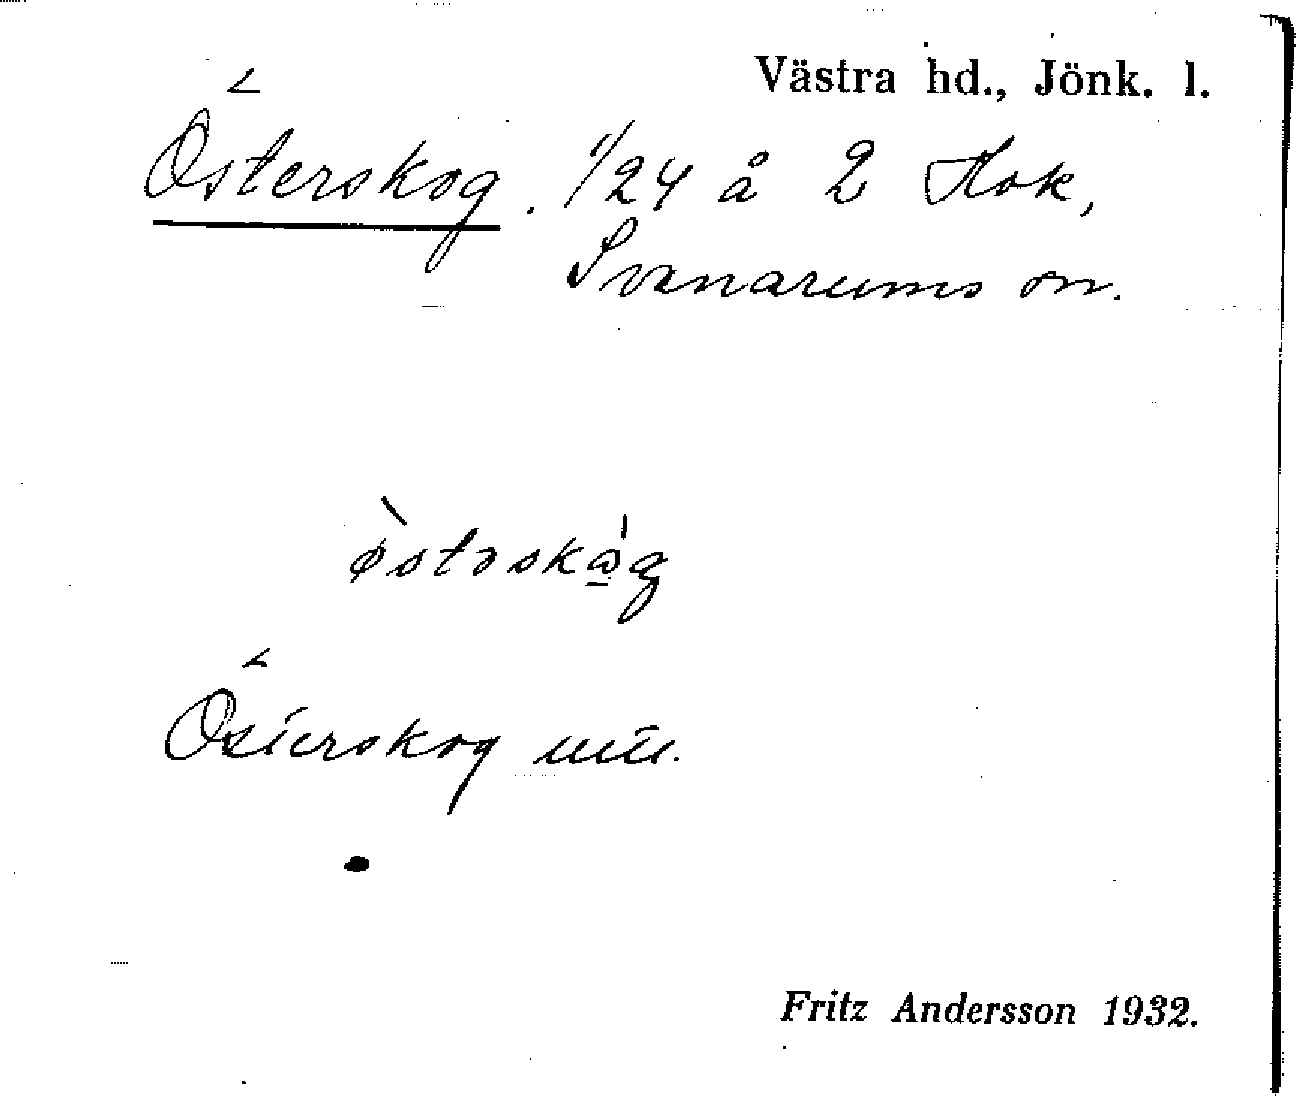 Västra hd., Jönk. l.
Österskog. 1/24 å 2 Hok,
Svenarums sn.
östəskåg
Österskog
Fritz Andersson 1932.